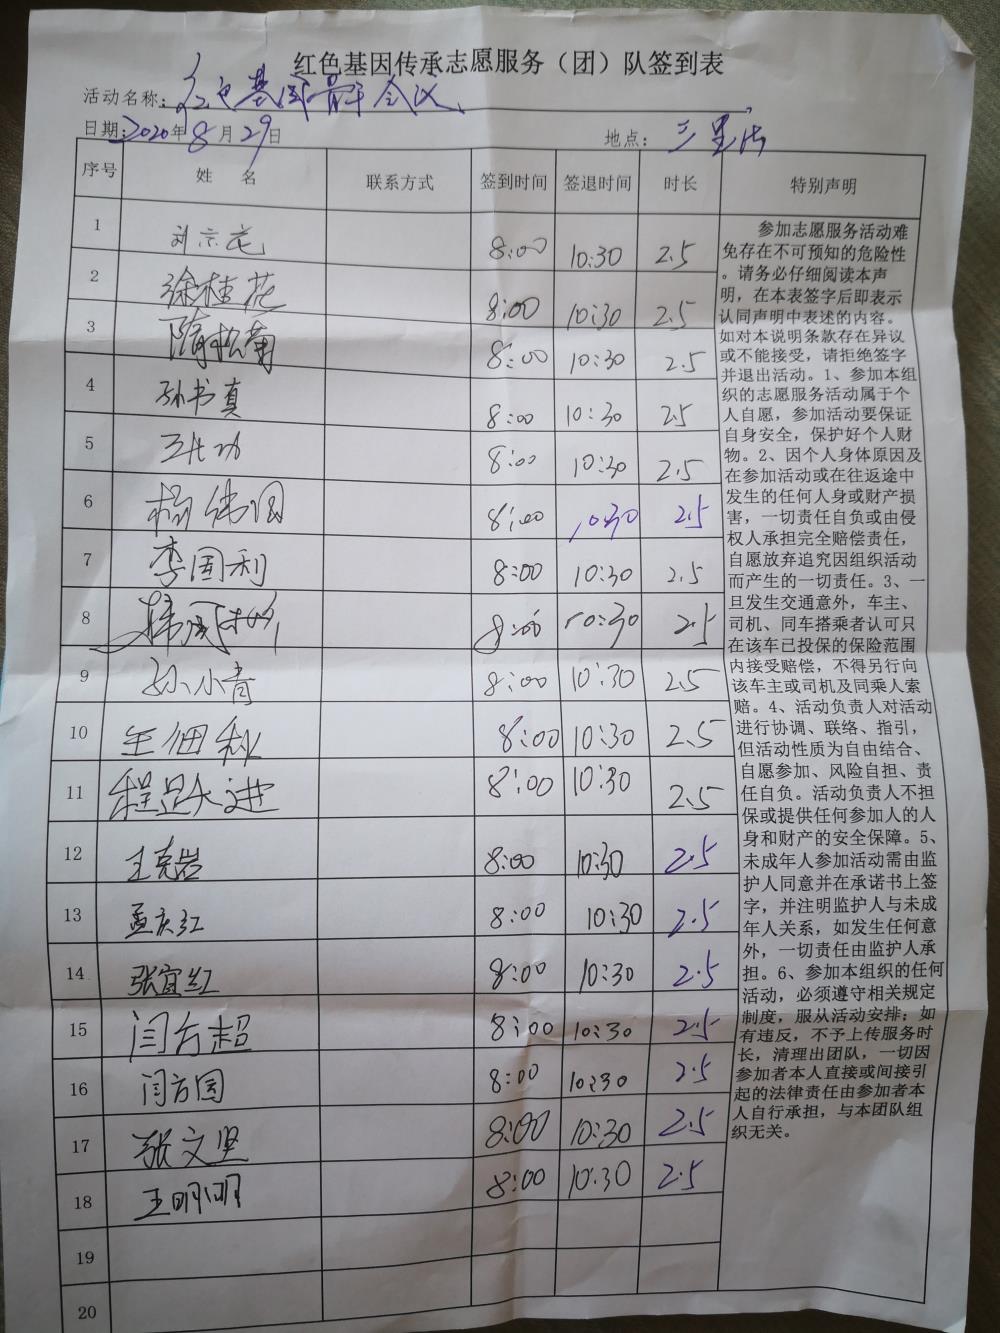 红色基因传承志愿服务（团）队签到表
活动名称：红色基因骨干会议
日期：2020年8月29日 地点：三里
序号 姓名 联系方式 签到时间 签退时间 时长 特别声明
1 刘宗花 8:00 10:30 2.5
2 徐桂花 8:00 10:30 2.5
3 隋松菊 8:00 10:30 2.5
4 孙书真 8:00 10:30 2.5
5 8:00 10:30 2.5
6 杨伟国 8:00 10:30 2.5
7 李国利 8:00 10:30 2.5
8 8:00 10:30 2.5
9 孙小青 8:00 10:30 2.5
10 8:00 10:30 2.5
11 程显大进 8:00 10:30 2.5
12 王克岩 8:00 10:30 2.5
13 孟庆红 8:00 10:30 2.5
14 张宜红 8:00 10:30 2.5
15 闫方超 8:00 10:30 2.5
16 闫方国 8:00 10:30 2.5
17 张文坚 8:00 10:30 2.5
18 王明明 8:00 10:30 2.5
19
20
参加志愿服务活动难
免存在不可预知的危险性
。请务必仔细阅读本声
明，在本表签字后即表示
认同声明中表述的内容。
如对本说明条款存在异议
或不能接受，请拒绝签字
并退出活动。1、参加本组
织的志愿服务活动属于个
人自愿，参加活动要保证
自身安全，保护好个人财
物。2、因个人身体原因及
在参加活动或在往返途中
发生的任何人身或财产损
害，一切责任自负或由侵
权人承担完全赔偿责任，
自愿放弃追究因组织活动
而产生的一切责任。3、一
旦发生交通意外，车主、
司机、同车搭乘者认可只
在该车已投保的保险范围
内接受赔偿，不得另行向
该车主或司机及同乘人索
赔。4、活动负责人对活动
进行协调、联络、指引，
但活动性质为自由结合、
自愿参加、风险自担、责
任自负。活动负责人不担
保或提供任何参加人的人
身和财产的安全保障。5、
未成年人参加活动需由监
护人同意并在承诺书上签
字，并注明监护人与未成
年人关系，如发生任何意
外，一切责任由监护人承
担。6、参加本组织的任何
活动，必须遵守相关规定
制度，服从活动安排；如
有违反，不予上传服务时
长，清理出团队，一切因
参加者本人直接或间接引
起的法律责任由参加者本
人自行承担，与本团队组
织无关。